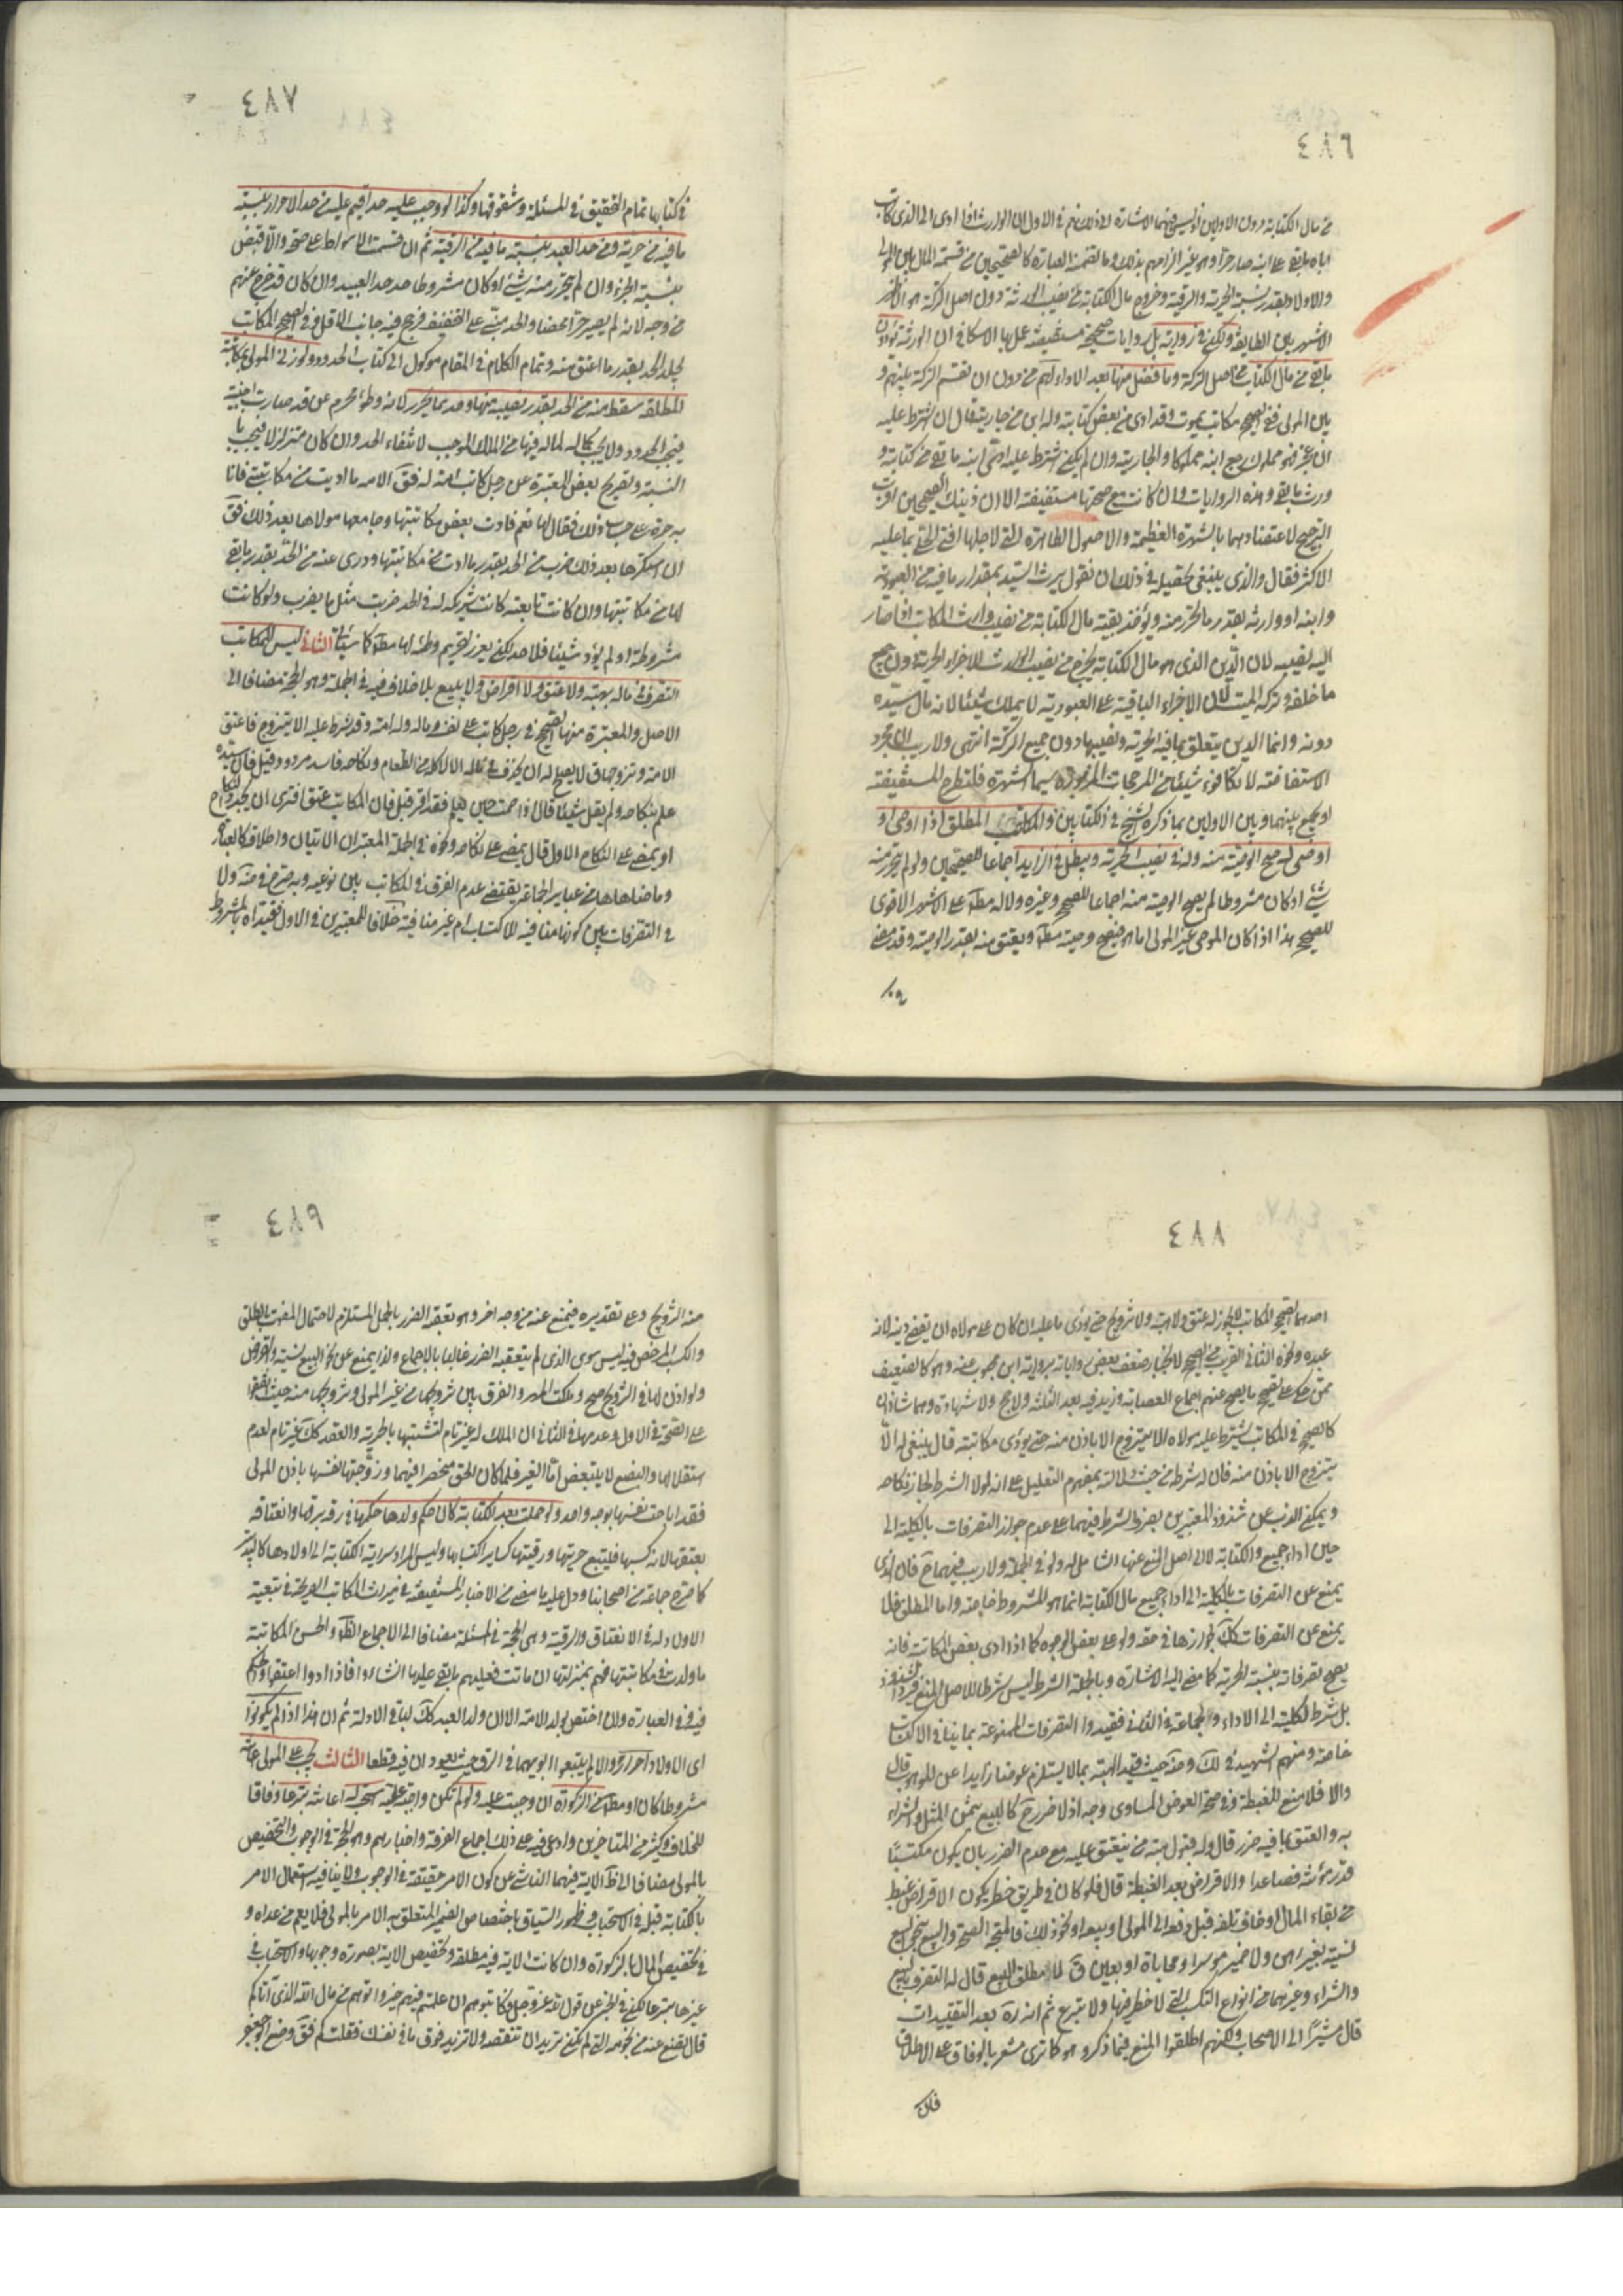 ٤٨٦
من مال الكتابة دون الاولين اذ ليس فيهما الاشارة لذلك نعم في الاول ان الوارث اذا ادى الى الذي كاتب
اباه ما بقي على ابيه صار حرا وهو غير الزامهم بذلك وما تضمنه العبارة كالصحيحين من قسمة المال بين المولى
والاولاد بقدر نسبة الحرية والرقية وخروج مال الكتابة من نصيب الورثة دون اصل التركة هو الاظهر
الاشهر بين الطايفة ولكن في رواية بل روايات صحيحة مستفيضة عمل بها الاسكافي ان الورثة يؤدون
ما بقي من مال الكتابة من اصل التركة وما فضل منها بعد الاداء لهم من دون ان تقسم التركة بينهم و
بين المولى ففي الصحيح مكاتب يموت وقد ادى من بعض كتابته وله ابن من جاريته قال ان اشترط عليه
ان عجز فهو مملوك رجع ابنه مملوكا والجارية وان لم يكن اشترط عليه ادى ابنه ما بقي من كتابته و
ورث ما بقي وهذه الروايات وان كانت مع صحتها مستفيضة الا ان ذينك الصحيحين اقرب
الترجيح لاعتضادهما بالشهرة العظيمة والاصول الطاهرة التي لاجلها افتى الحلي بما عليه
الاكثر فقال والذي ينبغي تحصيله في ذلك ان نقول يرث السيد بمقدار ما فيه من العبودية
وابنه او وارثه بقدر ما تحرر منه ويؤخذ بقية مال الكتابة من نصيب وارث المكاتب اذا صار
اليه نصيبه لان الدين الذي هو مال الكتابة يخرج من نصيب الوارث للاجزاء الحرية دون جميع
ما خلفه وتركه الميت لان الاجزاء الباقية على العبودية لا يملك شيئا لانه مال سيده
دونه وانما الدين يتعلق بما فيه الحرية ونصيبها دون جميع التركة انتهى ولا ريب ان مجرد
الاستفاضة لا تكافوء شيئا من المرجحات المزبورة سيما الشهرة فلتطرح المستفيضة
او يجمع بينهما وبين الاولين بما ذكره الشيخ في الكتابين والمكاتب المطلق اذا اوصى او
اوصى له صح الوصية منه وله في نصيب الحرية وبطل في الزايد اجماعا للصحيحين ولو لم يتحرر منه
شيء او كان مشروطا لم يصح الوصية منه اجماعا للصحيح وغيره ولا له مطلقا على الاشهر الاقوى
للصحيح هذا اذا كان الموصي غير المولى اما هو فيصح وصيته مطلقا ويعتق منه بقدر الوصية وقد مضى
٤٨٧
في كتابها تمام التحقيق في المسئلة وشقوقها وكذا لو وجب عليه حد اقيم عليه من حد الاحرار بنسبة
ما فيه من حرية ومن حد العبد بنسبة ما فيه من الرقية ثم ان قسمت الاسواط على صحة والا قبض
بنسبة الجزء وان لم يتحرر منه شيء او كان مشروطا حد حد العبيد وان كان قد خرج عنهم
من وجه لانه لم يصير حرا محضا والحد مبني على التخفيف فرجح فيه جانب الاقل وفي الصحيح المكاتب
يجلد الحد بقدر ما اعتق منه وتمام الكلام في المقام موكول الى كتاب الحدود ولو زنى المولى بمكاتبته
المطلقة سقط منه من الحد بقدر نصيبه منها وحد بما تحرر لانه وطؤ محرم عمن قد صارت اجنبية
فيجب الحد ولا يجب كماله لماله فيها من الملك الموجب لانتفاء الحد وان كان متزلزلا فيجب با
النسبة ولصريح بعض المعتبرة عن رجل كاتب امته له فقالت الامه ما اديت من مكاتبتي فانا
به حرة على حساب ذلك فقال لها نعم فادت بعض مكاتبتها وجامعها مولاها بعد ذلك فقال
ان استكرهها بعد ذلك ضرب من الحد بقدر ما ادت من مكاتبتها ودرى عنه من الحد بقدر ما بقي
لها من مكاتبتها وان كانت تابعته كانت شريكه له في الحد ضربت مثل ما يضرب ولو كانت
مشروطة او لم يؤد شيئا فلا حد لكن يعزر لتحريم وطئه لها مطلقا كما سيأتي الثاني ليس للمكاتب
التصرف في ماله بهبة ولا عتق ولا اقراض ولا بيع بلا خلاف فيه في الجملة وهو الحجة مضافا الى
الاصل والمعتبرة منها الصحيح في رجل كاتب على نفسه وماله وله امة وقد شرط عليه الا يتزوج فاعتق
الامة وتزوجها قال لا يصلح له ان يحدث في ماله الا الاكلة من الطعام ونكاحه فاسد مردود قيل فان سيده
علم بنكاحه ولم يقل شيئا قال اذا صمت حين يعلم فقد اقر قيل فان المكاتب عتق افترى ان يجدد النكاح
او يمضي على النكاح الاول قال يمضي على نكاحه ونحوه في الجملة المعتبران الاتيان واطلاق كالعبارة
وما ضاهاها من عباير الجماعة يقتضي عدم الفرق في المكاتب بين نوعيه وبه صرح في ضه ولا
في التصرفات بين كونها منافية للاكتساب ام غير منافية خلافا للمعتبرين في الاول فقيداه بالمشروط
٤٨٨
احدهما الصحيح المكاتب لا يجوز له عتق ولا هبة ولا تزويج حتى يؤدي ما عليه ان كان على مولاه ان يقضي دينه لانه
عبده ونحوه الثاني القريب من الصحيح لانجبار ضعف بعض رواياته برواية ابن محبوب عنه وهو كالضعيف
ممن حكي على تصحيح ما يصح عنهم اجماع العصابة وزيد فيه بعد الثلثة ولا حج ولا شهادة وهما شاذان
كالصحيح في المكاتب يشترط عليه مولاه الا يتزوج الا باذن منه حتى يؤدي مكاتبته قال ينبغي له الا
يتزوج الا باذن منه فان له شرطه من حيث دلالة بمفهوم التعليل على انه لولا الشرط لجاز نكاحه
ويمكن الذب عن شذوذ المعتبرين بصرف الشرط فيهما على عدم جواز التصرفات بالكلية الى
حين اداء جميع والكتابة لا الى اصل المنع عنها الشامل له ولو في الجملة ولا ريب فيهما ح فان الذي
يمنع عن التصرفات بالكلية الى اداء جميع مال الكتابة انما هو المشروط خاصة واما المطلق فلا
يمنع عن التصرفات كك لجوازها في حقه ولو على بعض الوجوه كما اذا ادى بعض المكاتبة فانه
يصح تصرفاته بنسبة الحرية كما مضى اليه الاشارة وبالجملة الشرط ليس شرطا لاصل المنع
بل شرط لكليته الى الاداء والجماعة في الثاني فقيدوا التصرفات الممنوعة بما ينافي الاكتساب
خاصة ومنهم الشهيد في لك وضه حيث قيد الهبة بما لا يستلزم عوضا زايدا عن الموهوب قال
والا فلا منع للغبطة وفي صحة العوض المساوي وجه اذ لا ضرر ح كالبيع بثمن المثل والشراء
به والعتق بما فيه ضرر قال وله قبول هبة من ينعتق عليه مع عدم الضرر بان يكون مكتسبا
قدر مؤنته فصاعدا والاقراض بعدم الغبطة قال فلو كان في طريق خطر يكون الاقراض غبط
من بقاء المال او خاف تلفه قبل دفعه الى المولى او بيعه او نحو ذلك فالمتجه الصحة والبيع
نسية بغير رهن ولا ضمين موسر او محاباة او بعين ق لا مطلق البيع قال له التصرف بالبيع
والشراء وغيرهما من انواع التكسب التي لا خطر فيها ولا تبرع ثم انه ره بعد التقييدات
قال مشيرا الى الاصحاب ولكنهم اطلقوا المنع فيما ذكر وهو كما ترى مشعر بالوفاق على الاطلاق
فان
٤٨٩
منه التزويج وعلى تقديره فيمنع عنه من وجه اخر وهو تعقبه الضرر بالحمل المستلزم لاحتمال الموت بالطلق
والكسب المرخص فيه ليس سوى الذي لم يتعقبه الضرر غالبا بالاجماع ولذا يمنع عن نحو البيع نسية والقرض
ولو اذن لها في التزويج صح وملكت المهر والفرق بين تزويجها من غير المولى وتزويجها منه حيث اتفقوا
على الصحة في الاول وعدمها في الثاني ان الملك له غير تام لتشبثها بالحرية والعقد كك غير تام لعدم
استقلالها والبضع لا يتبعض اما الغير فلما كان الحق منحصرا فيهما وزوجتها نفسها باذن المولى
فقد اباحت نفسها بوجه واحد ولو حملت بعد الكتابة كان حكم ولدها حكمها في رقه برقها وانعتاقه
بعتقها لانه كسبها فليتبع حريتها ورقيتها كساير اكتسابها وليس المراد سراية الكتابة الى اولادها كالتدبير
كما صرح جماعة من اصحابنا ودل عليه ما مضى من الاخبار المستفيضة في ميراث المكاتب الصريحة في تبعية
الاولاد له في الانعتاق والرقية وهي الحجة في المسئلة مضافا الى الاجماع الظاهر والحسن المكاتبة
ما ولدت في مكاتبتها فهم بمنزلتها ان ماتت فعليهم ما بقي عليها ان شاءوا فاذا ادوا اعتقوا والحكم
فيه وفي العبارة وان اختص بولد الامة الا ان ولد العبد كك لباقي الادلة ثم ان هذا اذا لم يكونوا
اى الاولاد احرارا والا لم يتبعوا ابويهما في الرق حيث يعودان فيه قطعا الثالث يجب على المولى اعانته
مشروطا كان او مطلقا من الزكوة ان وجبت عليه ولو لم تكن واجبة عليه استحب له اعانته تبرعا وفاقا
للخلاف وكثير من المتاخرين وادعى فيه على ذلك اجماع الفرقة واخبارهم وهو الحجة في الوجوب والتخصيص
بالمولى مضافا الى ظ الاية فيهما الناشى عن كون الامر حقيقة في الوجوب ولا ينافيه استعمال الامر
بالكتابة قبله في الاستحباب وظهور السياق باختصاص الضمير المتعلق به الامر بالمولى فلا يعم من عداه و
في تخصيص المال بالزكوة وان كانت الاية فيه مطلقة وتخصيص الاية بصورة وجوبها والاستحباب في
غيرها تبرعا لكن في الخبر عن قول الله عز وجل وكاتبوهم ان علمتم فيهم خيرا واتوهم من مال الله الذي آتاكم
قال تضع عنه من نجومه التي لم تكن تريد ان تنقصه ولا تزيد فوق ما في نفسك فقلت كم فقال وضع ابو جعفر